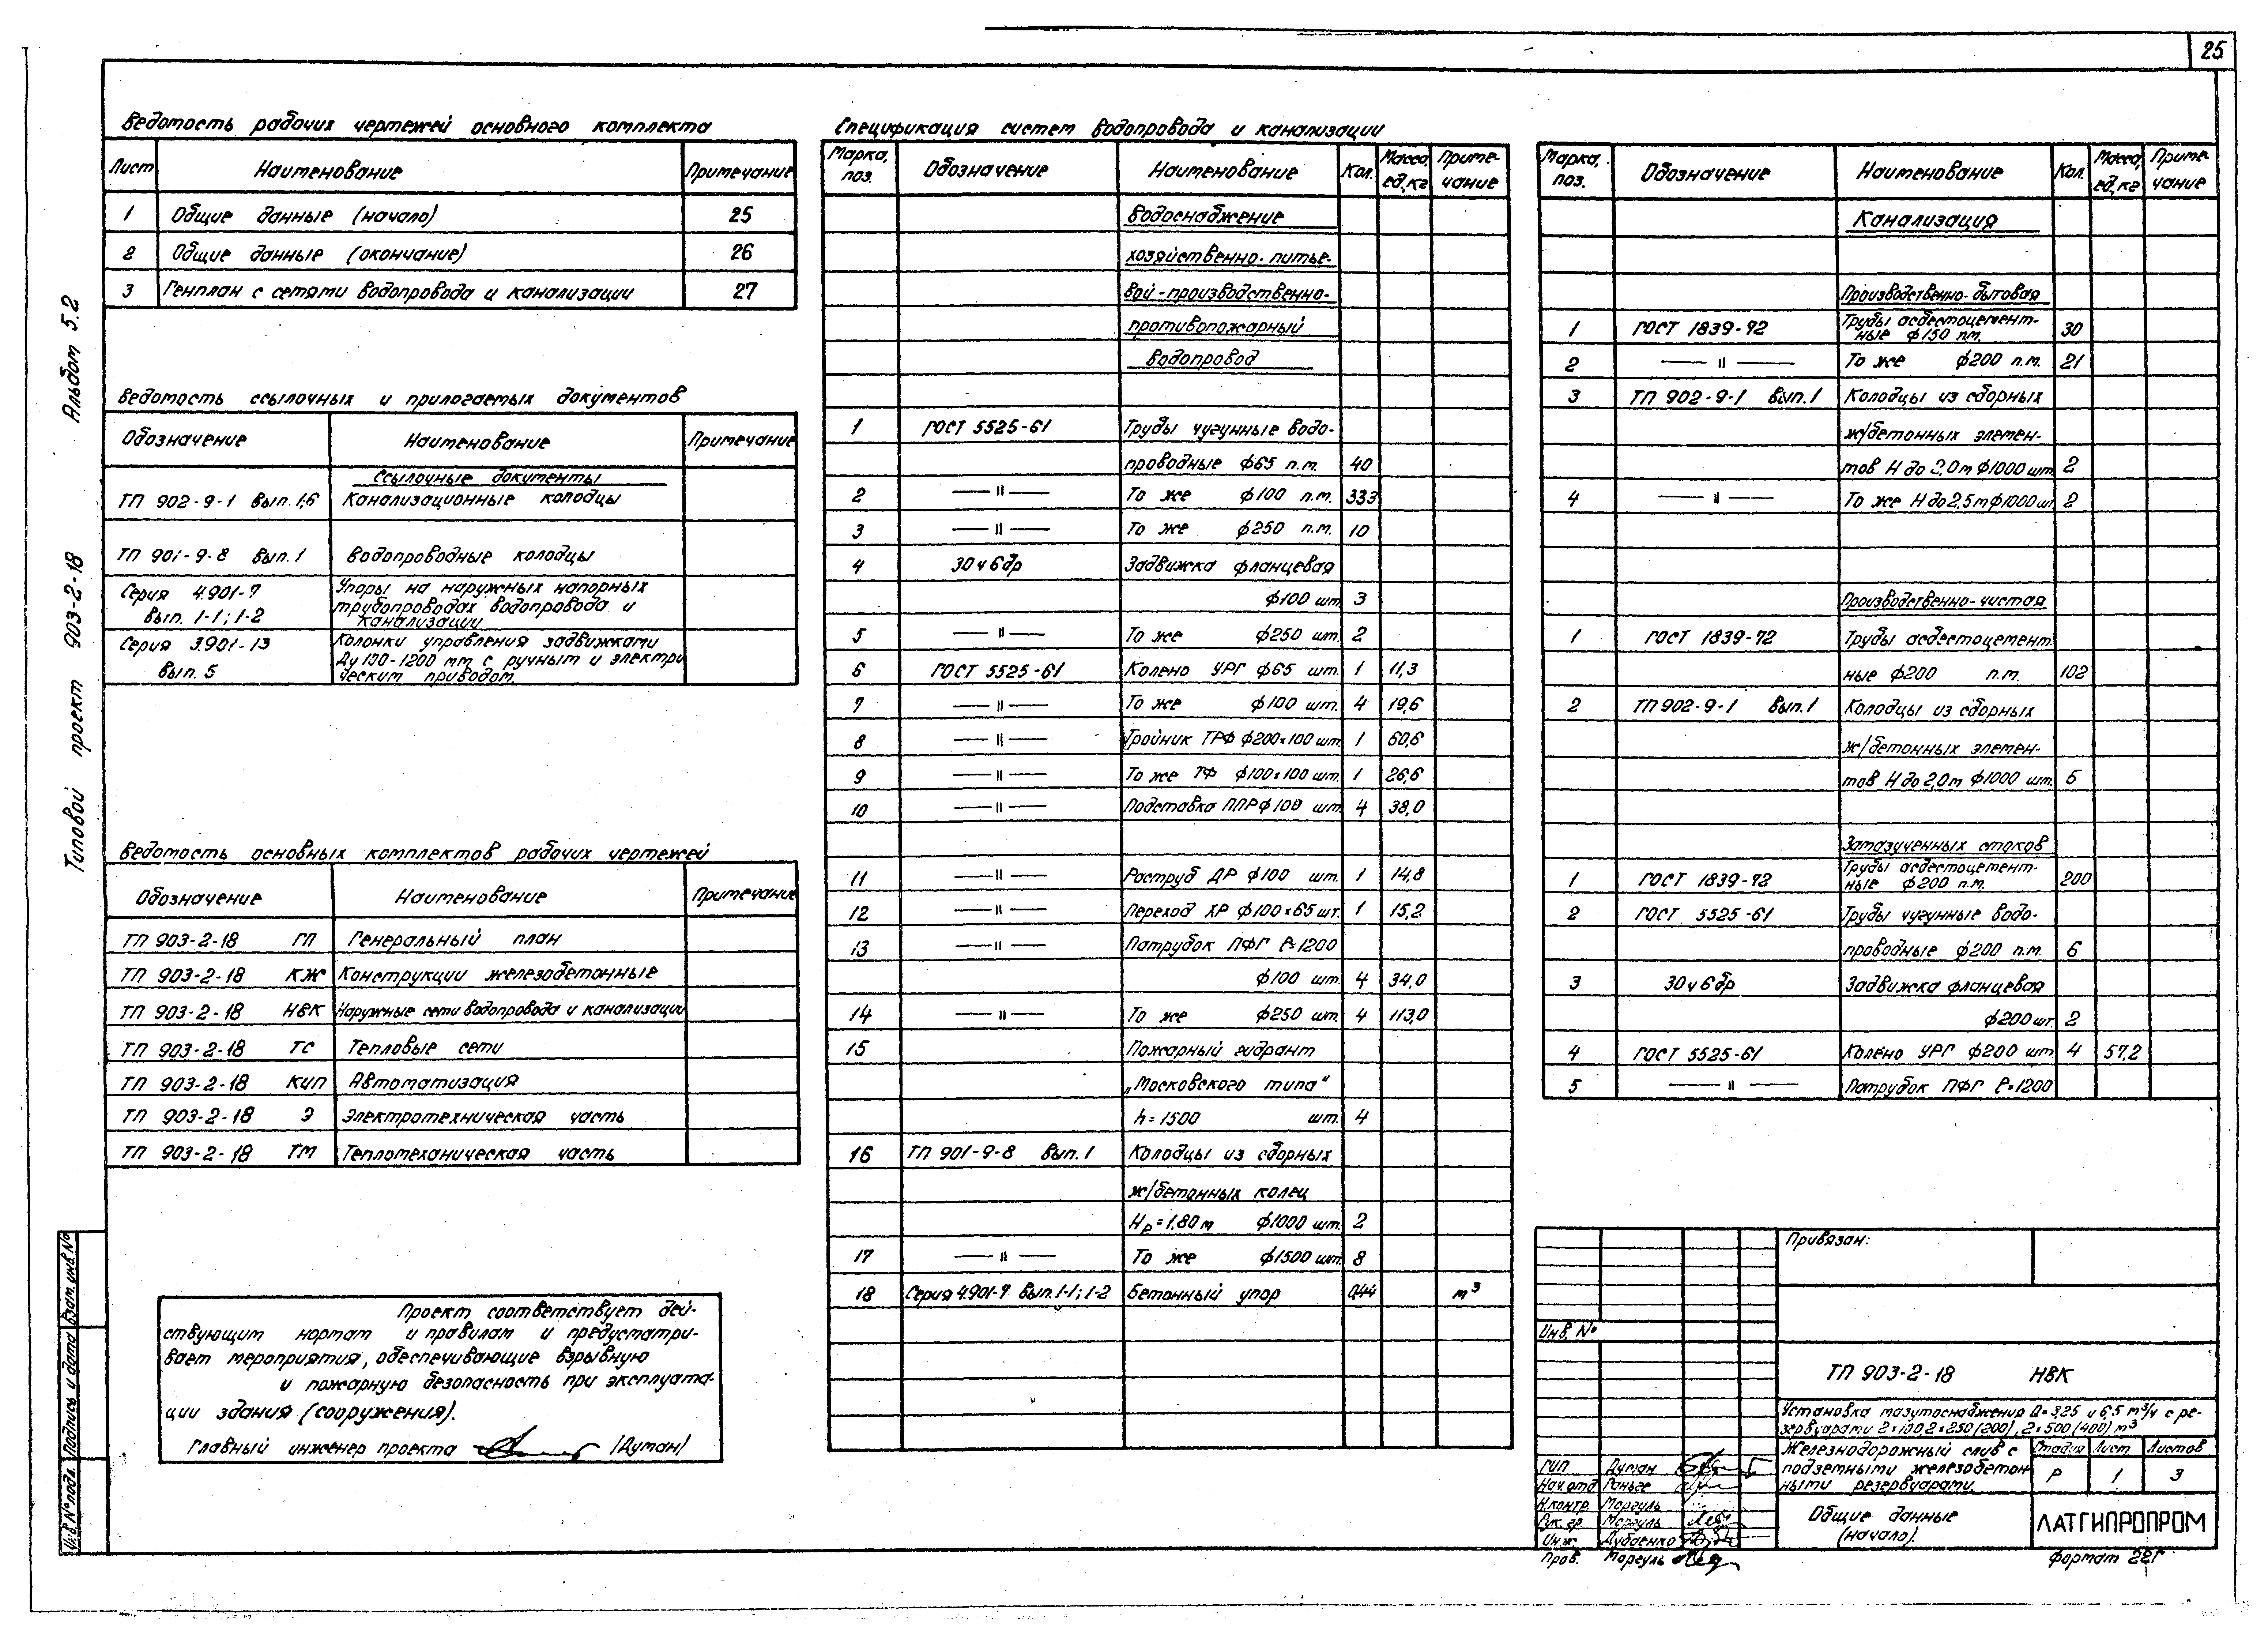 25
Альбом 5.2
Типовой проект 903-2-18
Ведомость рабочих чертежей основного комплекта
Лист Наименование Примечание
1 Общие данные (начало) 25
2 Общие данные (окончание) 26
3 Генплан с сетями водопровода и канализации 27
Ведомость ссылочных и прилагаемых документов
Обозначение Наименование Примечание
Ссылочные документы
ТП 902-9-1 Вып.1,6 Канализационные колодцы
ТП 901-9-8 Вып.1 Водопроводные колодцы
Серия 4.901-7 Упоры на наружных напорных
вып. 1-1; 1-2 трубопроводах водопровода и
канализации
Серия 3.901-13 Колонки управления задвижками
Вып. 5 Ду 100-1200 мм с ручным и электри
ческим приводом.
Ведомость основных комплектов рабочих чертежей
Обозначение Наименование Примечание
ТП 903-2-18 ГП Генеральный план
ТП 903-2-18 КЖ Конструкции железобетонные
ТП 903-2-18 НВК Наружные сети водопровода и канализации
ТП 903-2-18 ТС Тепловые сети
ТП 903-2-18 КИП Автоматизация
ТП 903-2-18 Э Электротехническая часть
ТП 903-2-18 ТМ Тепломеханическая часть
Проект соответствует дей-
ствующим нормам и правилам и предусматри-
вает мероприятия, обеспечивающие взрывную
и пожарную безопасность при эксплуата-
ции здания (сооружения).
Главный инженер проекта /Думан/
Спецификация систем водопровода и канализации
Марка, поз. Обозначение Наименование Кол. Масса, ед, кг Приме-чание
Водоснабжение
хозяйственно-питье-
вой-производственно-
противопожарный
водопровод
1 ГОСТ 5525-61 Трубы чугунные водо-
проводные ф65 п.м. 40
2 —〃— То же ф100 п.м. 333
3 —〃— То же ф250 п.м. 10
4 30ч6бр Задвижка фланцевая
ф100 шт. 3
5 —〃— То же ф250 шт. 2
6 ГОСТ 5525-61 Колено УРГ ф65 шт. 1 11,3
7 —〃— То же ф100 шт. 4 19,6
8 —〃— Тройник ТРФ ф200×100 шт. 1 60,6
9 —〃— То же ТФ ф100×100 шт. 1 26,6
10 —〃— Подставка ППР ф100 шт. 4 38,0
11 —〃— Раструб ДР ф100 шт. 1 14,8
12 —〃— Переход ХР ф100×65 шт. 1 15,2
13 —〃— Патрубок ПФГ ℓ=1200
ф100 шт. 4 34,0
14 —〃— То же ф250 шт. 4 113,0
15 Пожарный гидрант
„Московского типа"
h=1500 шт. 4
16 ТП 901-9-8 Вып.1 Колодцы из сборных
ж/бетонных колец
Нр=1,80м ф1000 шт. 2
17 —〃— То же ф1500 шт. 8
18 Серия 4.901-7 Вып.1-1; 1-2 Бетонный упор 0,44 м³
Марка, поз. Обозначение Наименование Кол. Масса, ед, кг Приме-чание
Канализация
Производственно-бытовая
1 ГОСТ 1839-72 Трубы асбестоцемент-
ные ф150 п.м. 30
2 —〃— То же ф200 п.м. 21
3 ТП 902-9-1 Вып.1 Колодцы из сборных
ж/бетонных элемен-
тов Н до 2,0м ф1000 шт. 2
4 —〃— То же Н до 2,5м ф1000 шт. 2
Производственно-чистая
1 ГОСТ 1839-72 Трубы асбестоцемент.
ные ф200 п.м. 102
2 ТП 902-9-1 Вып.1 Колодцы из сборных
ж/бетонных элемен-
тов Н до 2,0м ф1000 шт. 6
Замазученных стоков
1 ГОСТ 1839-72 Трубы асбестоцемент-
ные ф200 п.м. 200
2 ГОСТ 5525-61 Трубы чугунные водо-
проводные ф200 п.м. 6
3 30ч6бр Задвижка фланцевая
ф200 шт. 2
4 ГОСТ 5525-61 Колено УРГ ф200 шт 4 57,2
5 —〃— Патрубок ПФГ ℓ=1200
Привязан:
Инв. №
ТП 903-2-18 НВК
Установка мазутоснабжения Q=3,25 и 6,5 м³/ч с ре-
зервуарами 2×100, 2×250 (200), 2×500 (400) м³
Железнодорожный слив с
подземными железобетон
ными резервуарами.
Стадия Лист Листов
Р 1 3
Общие данные
(начало).
ЛАТГИПРОПРОМ
ГИП Думан
Нач.отд Ганьге
Н.контр. Моргуль
Рук. гр. Моргуль
Инж. Дубаенко
Пров. Моргуль
Формат 22Г
Инв.№ подл. Подпись и дата Взам. инв.№